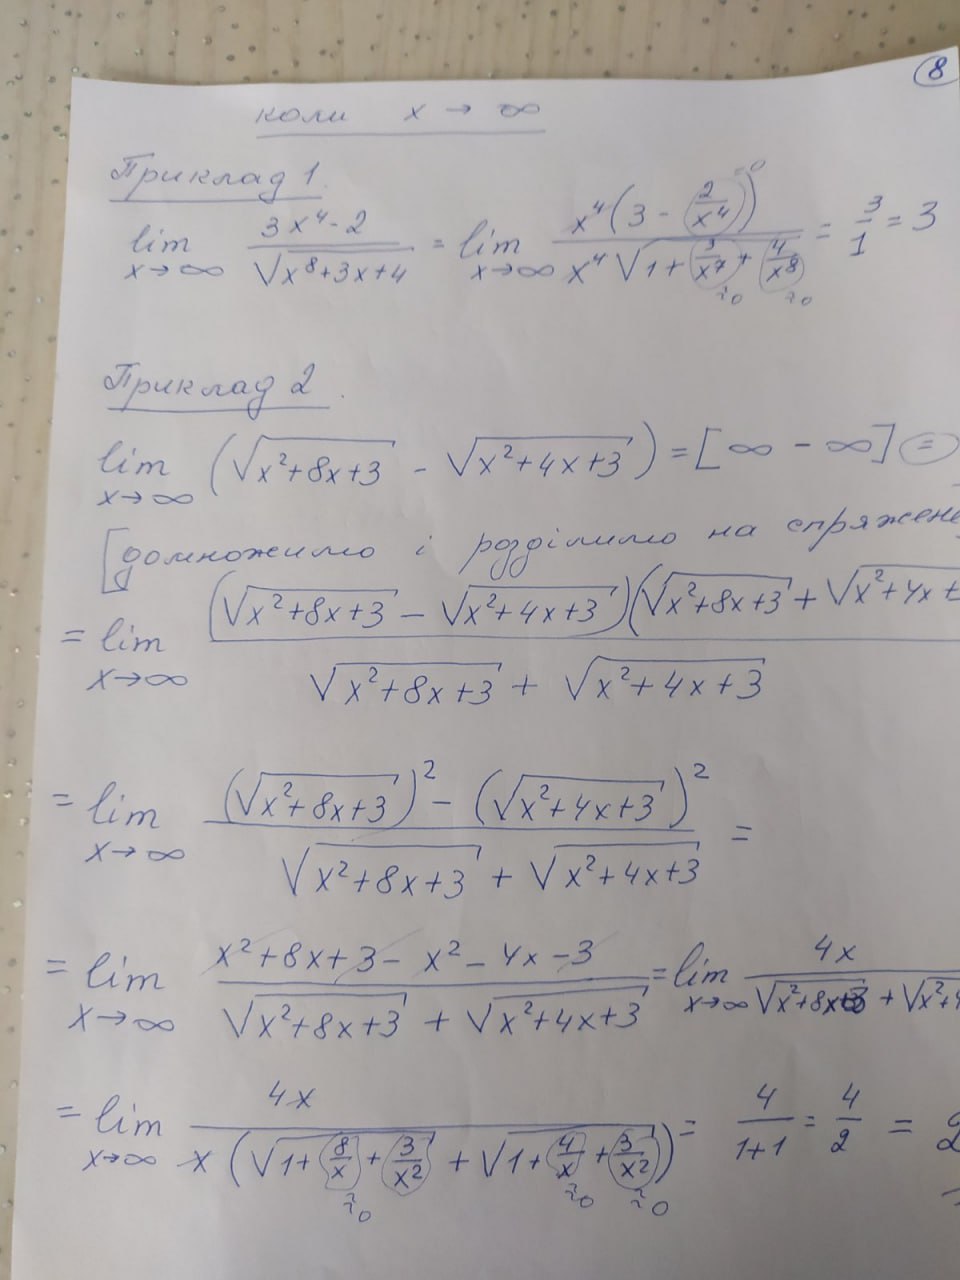 8
коли x → ∞
Приклад 1.
lim x→∞ (3x⁴-2)/(√(x⁸+3x+4)) = lim x→∞ (x⁴(3 - 2/x⁴))/(x⁴√(1+3/x⁷+4/x⁸)) = 3/1 = 3
≈0 ≈0 ≈0
Приклад 2.
lim x→∞ (√(x²+8x+3) - √(x²+4x+3)) = [∞ - ∞] =
[домножимо і розділимо на спряжене
= lim x→∞ ((√(x²+8x+3) - √(x²+4x+3))(√(x²+8x+3) + √(x²+4x+
√(x²+8x+3) + √(x²+4x+3)
= lim x→∞ ((√(x²+8x+3))² - (√(x²+4x+3))²)/(√(x²+8x+3) + √(x²+4x+3)) =
= lim x→∞ (x²+8x+3 - x² - 4x - 3)/(√(x²+8x+3) + √(x²+4x+3)) = lim x→∞ 4x/(√(x²+8x+3) + √(x²+4
= lim x→∞ 4x/(x(√(1+8/x+3/x²) + √(1+4/x+3/x²))) = 4/(1+1) = 4/2 = 2
≈0 ≈0 ≈0